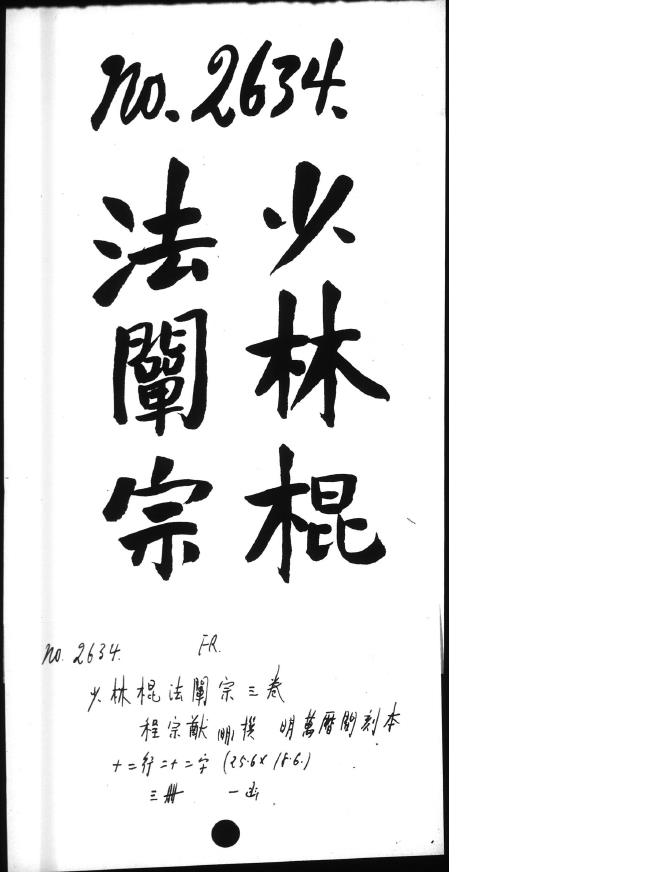 no. 2634.
少林棍
法闡宗
no. 2634. FR.
少林棍法闡宗三卷
程宗猷 明 撰 明萬曆間刻本
十二行二十二字 (25.6 x 15.6.)
三冊 一函